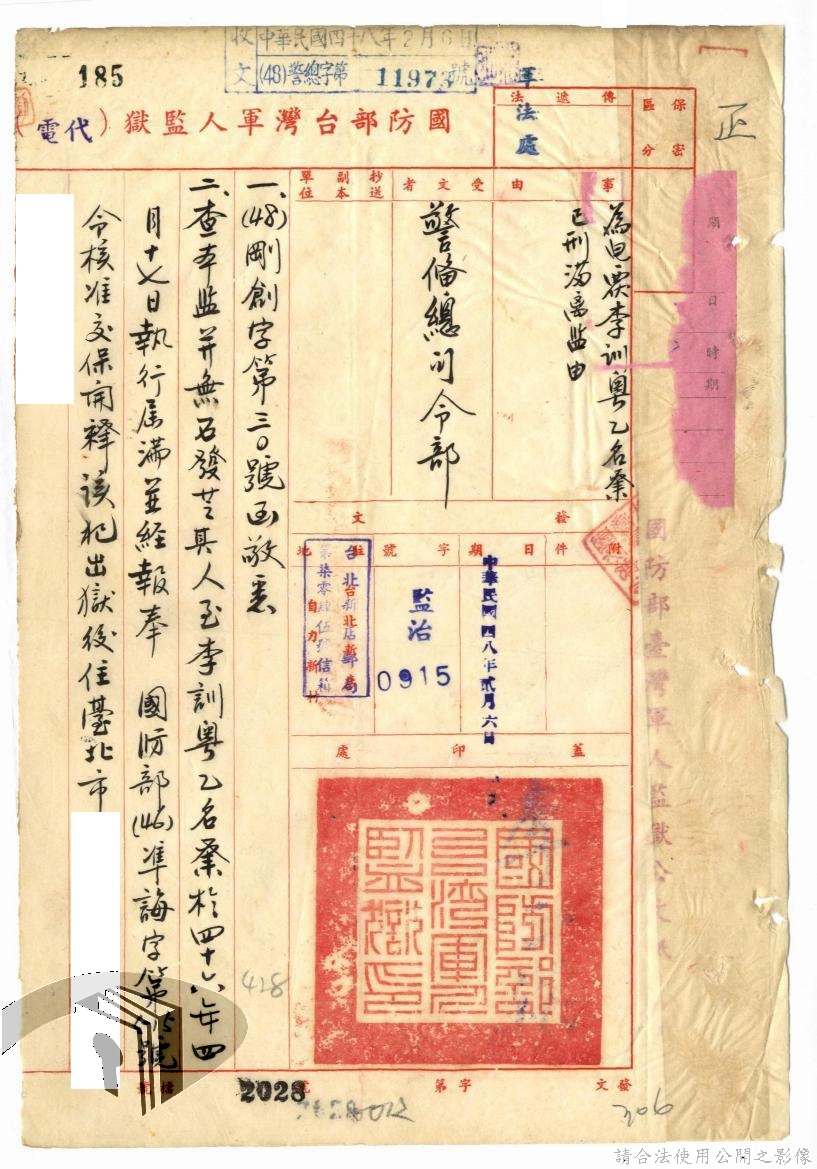 收文
中華民國四十八年2月6日
(48)警總字第11973號
185
軍法處
正
國防部台灣軍人監獄（代電
傳遞法
保密
區分
事由
受文者
抄送副本單位
為电覆李訓粵乙名業
已刑滿离監由
警備總司令部
發文
附件
日期
字號
駐地
中華民國四八年貳月六日
監治
0915
台北台新北店新郵局
自力新村
蓋印處
國防部台灣軍人監獄印
期日時期
國防部臺灣軍人監獄公文紙
一、(48)剛創字第三〇號函敬悉
二、查本監并無石發芝其人至李訓粵乙名業於四十六年四
月十七日執行届滿並経報奉 國防部(46)準誨字第 號
令核准交保開釋該犯出獄後住臺北市
428
2028
發文 字第 號
檔號
206
請合法使用公開之影像